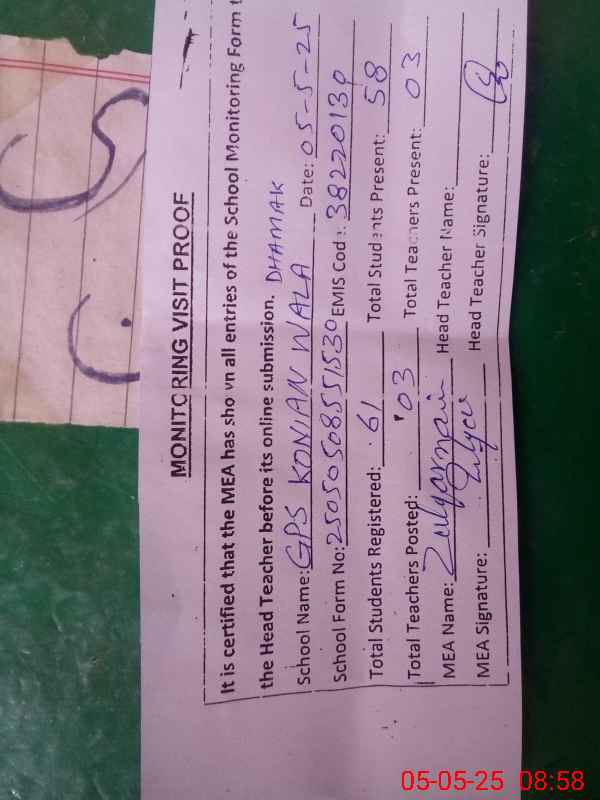 MONITORING VISIT PROOF
It is certified that the MEA has shown all entries of the School Monitoring Form t
the Head Teacher before its online submission. DHAMAK
School Name: GPS KONIAN WALA Date: 05-5-25
School Form No: 250505085551530 EMIS Code: 38220130
Total Students Registered: 61 Total Students Present: 58
Total Teachers Posted: 03 Total Teachers Present: 03
MEA Name: Zulqarnain Head Teacher Name:
MEA Signature: Head Teacher Signature:
05-05-25 08:58